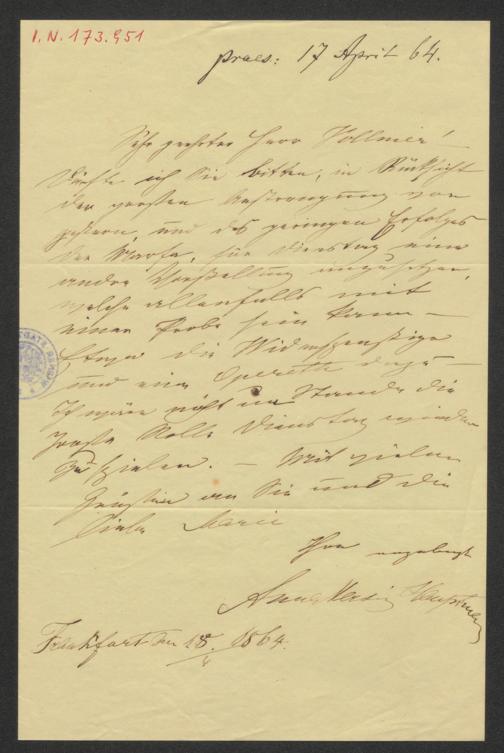 I.N. 173.951
praes: 17 April 64.
Sehr geehrter Herr Vollmer!
Dürfte ich Sie bitten, in Rücksicht
der großen Anstrengung von
gestern, und des geringen Erfolges
der Martha, für Dienstag eine
andre Vorstellung anzusetzen,
welche allenfalls mit
einer Probe sein kann –
Etwa die Widerspenstige
und eine Operette dazu –
Ich wäre nicht im Stande die
große Rolle Dienstag wieder
zu spielen. – Mit vielen
Grüßen an Sie und die
liebe Marie
Ihre
Anna
Frankfurt den 18. 1864.